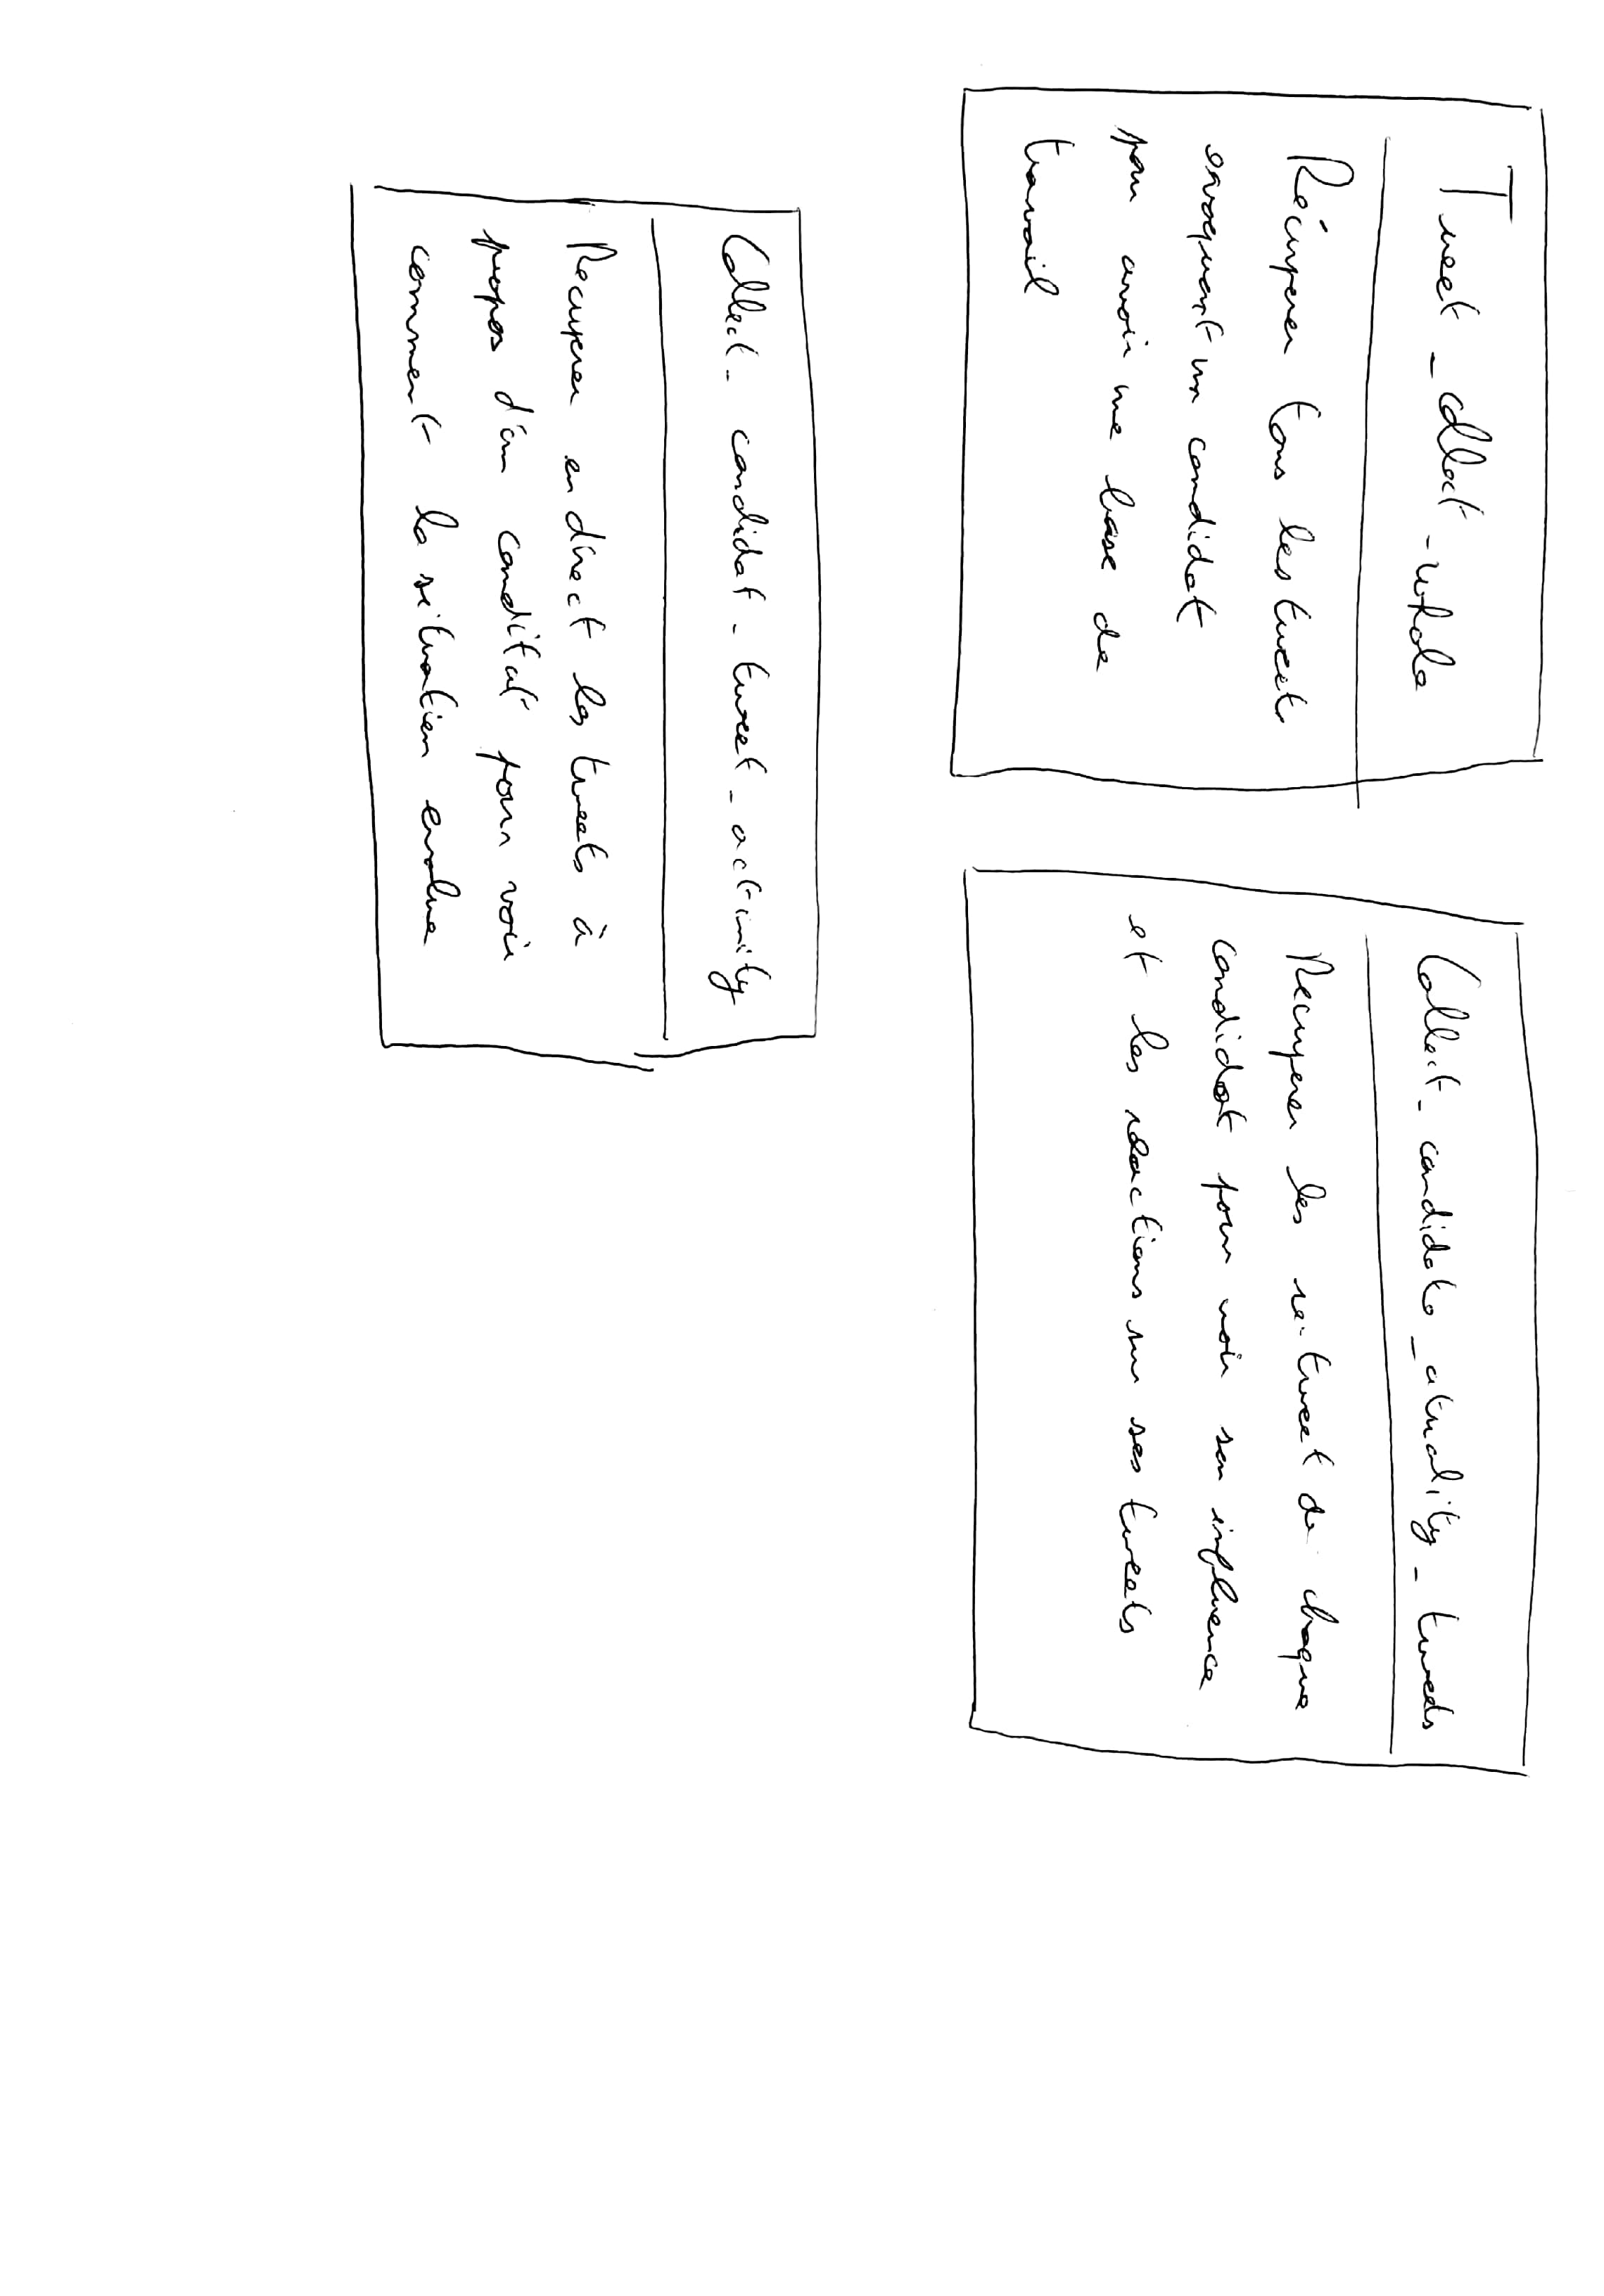 Tweet_collect_whole
Récuperer tous les tweets
évoquent un candidat
pour avoir une base de
travail
Collect_candidats_atuality_tweets
Recuperer les re-tweet de chaque
candidat pour voir son influence
et les réactions sur ses tweets
Collect_candidat_tweet_activity
Recuperer en direct les tweets à
propos d'un candidat pour voir
comment la situation evolue